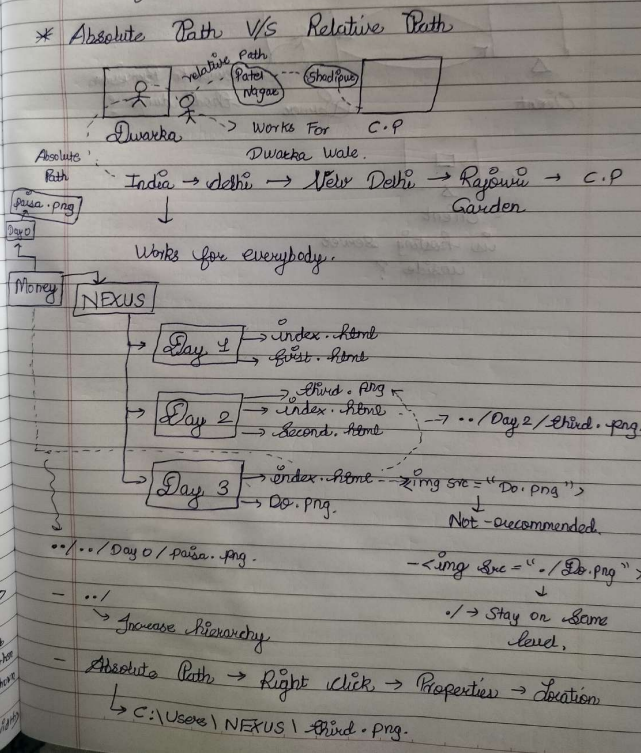 * Absolute Path V/S Relative Path
relative Path
Patel Nagar
Shadipur
Dwarka
Works For Dwarka Wale.
C.P
Absolute Path
India → delhi → New Delhi → Rajouri Garden → C.P
Works for everybody.
paisa.png
Day 0
Money
NEXUS
Day 1
index.html
first.html
Day 2
third.png
index.html
second.html
→ ../Day 2/third.png
Day 3
index.html
Do.png.
<img src="Do.png">
Not-recommended.
../../Day 0/paisa.png.
-<img src="./Do.png">
./ → Stay on Same level.
- ../
→ Increase hierarchy
- Absolute Path → Right click → Properties → Location
→ C:\Users\NEXUS\third.png.